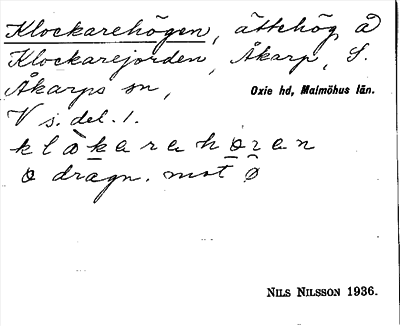 Klockarehögen, ättehög å
Klockarejorden, Åkarp, S.
Åkarps sn,
Oxie hd, Malmöhus län.
V s. del. 1.
klåkarehøran
o dragn. mot ø
NILS NILSSON 1936.